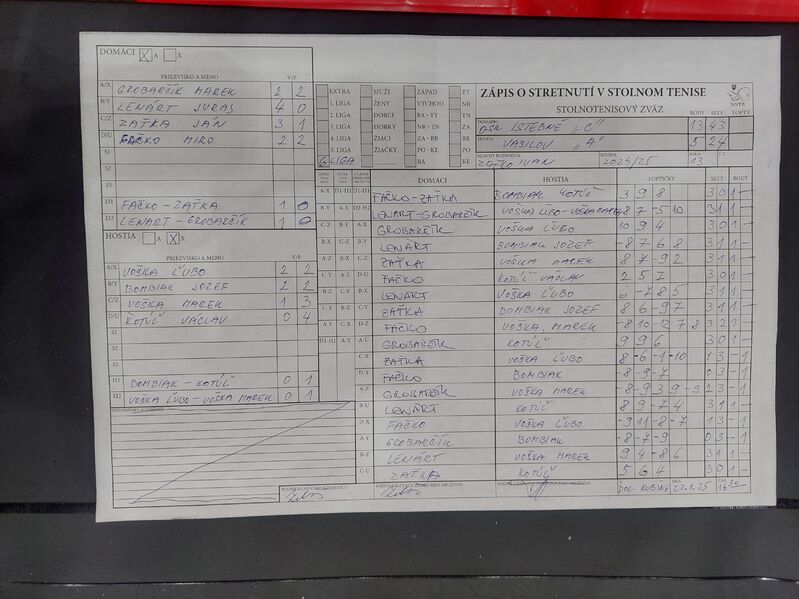 DOMÁCI X A X
PRIEZVISKO A MENO V/P
A/X GROBARČÍK MAREK 2 2
B/Y LENÁRT JURAJ 4 0
C/Z ZAŤKA JÁN 3 1
D/U FAČKO MIRO 2 2
S1
S2
S3
D1 FAČKO-ZAŤKA 1 0
D2 LENÁRT-GROBARČÍK 1 0
HOSTIA A X X
PRIEZVISKO A MENO V/P
A/X VOŠKA ĽUBO 2 2
B/Y BOMBIAK JOZEF 2 2
C/Z VOŠKA MAREK 1 3
D/U KOTÚĽ VÁCLAV 0 4
S1
S2
S3
H1 BOMBIAK-KOTÚĽ 0 1
H2 VOŠKA ĽUBO-VOŠKA MAREK 0 1
EXTRA MUŽI ZÁPAD TT
1. LIGA ŽENY VÝCHOD NR
2. LIGA DORCI BA-TY TN
3. LIGA DORKY NR-TN ZA
4. LIGA ŽIACI ZA-BB BB
5. LIGA ŽIAČKY PO-KE PO
6 LIGA BA KE
ZÁPIS O STRETNUTÍ V STOLNOM TENISE
STOLNOTENISOVÝ ZVÄZ
SSTZ
BODY SETY LOPTY
DOMÁCI ISTEBNÉ "C" 13 43
HOSTIA VASILOV "A" 5 24
HLAVNÝ ROZHODCA IVAN SEZÓNA 2024/25 13
DOMÁCI HOSTIA LOPTIČKY SETY BODY
A-X D1-H1 D1-H1 FAČKO-ZAŤKA BOMBIAK KOTÚĽ 3 9 8 3 0 1-
B-Y A-X D2-H2 LENÁRT-GROBARČÍK VOŠKA ĽUBO-VOŠKA MAREK 8 7 -5 10 3 1 1-
C-Z B-Y A-X GROBARČÍK VOŠKA ĽUBO 10 9 4 3 0 1-
B-X C-Z B-Y LENÁRT BOMBIAK JOZEF -8 7 6 8 3 1 1-
A-Z B-X C-Z ZAŤKA VOŠKA MAREK 8 7 -9 2 3 1 1-
C-Y A-Z D-U FAČKO KOTÚĽ VÁCLAV 2 5 7 3 0 1-
B-Z C-Y B-X LENÁRT VOŠKA ĽUBO 6 -7 8 5 3 1 1-
C-X B-Z C-Y ZAŤKA BOMBIAK JOZEF 8 6 -9 7 3 1 1-
A-Y C-X D-Z FAČKO VOŠKA MAREK -8 10 -12 7 8 3 2 1-
D1-H1 A-Y A-U GROBARČÍK KOTÚĽ 9 9 6 3 0 1-
C-X ZAŤKA VOŠKA ĽUBO 8 -6 -1 -10 1 3 -1
D-Y FAČKO BOMBIAK -8 -9 -7 0 3 -1
A-Z GROBARČÍK VOŠKA MAREK -8 9 3 9 -9 2 3 -1
B-U LENÁRT KOTÚĽ 8 9 -7 4 3 1 1-
D-X FAČKO VOŠKA ĽUBO -9 11 -8 -7 1 3 -1
A-Y GROBARČÍK BOMBIAK -8 -7 -9 0 3 -1
B-Z LENÁRT VOŠKA MAREK 9 4 -8 6 3 1 1-
C-U ZAŤKA KOTÚĽ 5 6 4 3 0 1-
DOL. KUBÍN DŇA 22.1.25 ČAS 16:30